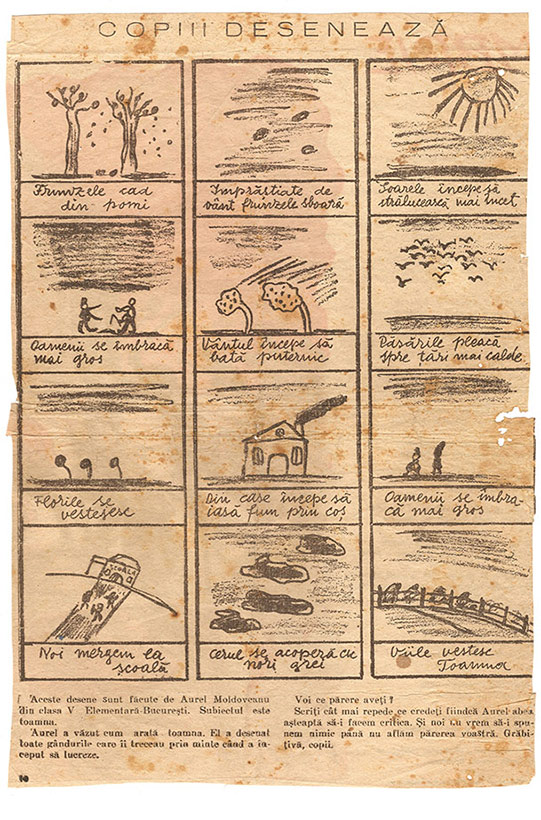 COPIII DESENEAZĂ
Frunzele cad
din pomi
Împrăștiate de
vânt frunzele sboară
Soarele începe să
strălucească mai încet
Oamenii se îmbracă
mai gros
Vântul începe să
bată puternic
Păsările pleacă
spre țări mai calde
Florile se
veștejesc
Din case începe să
iasă fum prin coș
Oamenii se îmbra-
că mai gros
ȘCOALA
Noi mergem la
școală
Cerul se acoperă cu
nori grei
Viile vestesc
Toamna
Aceste desene sunt făcute de Aurel Moldoveanu
din clasa V Elementară-București. Subiectul este
toamna.
Aurel a văzut cum arată toamna. El a desenat
toate gândurile care îi treceau prin minte când a în-
ceput să lucreze.
Voi ce părere aveți?
Scriți cât mai repede ce credeți fiindcă Aurel abea
așteaptă să-i facem critica. Și noi nu vrem să-i spu-
nem nimic până nu aflăm părerea voastră. Grăbi-
țivă, copii.
10